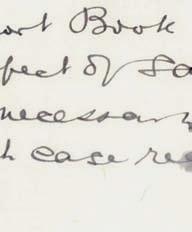 ort Book
pect of Sa
necessary
h case re